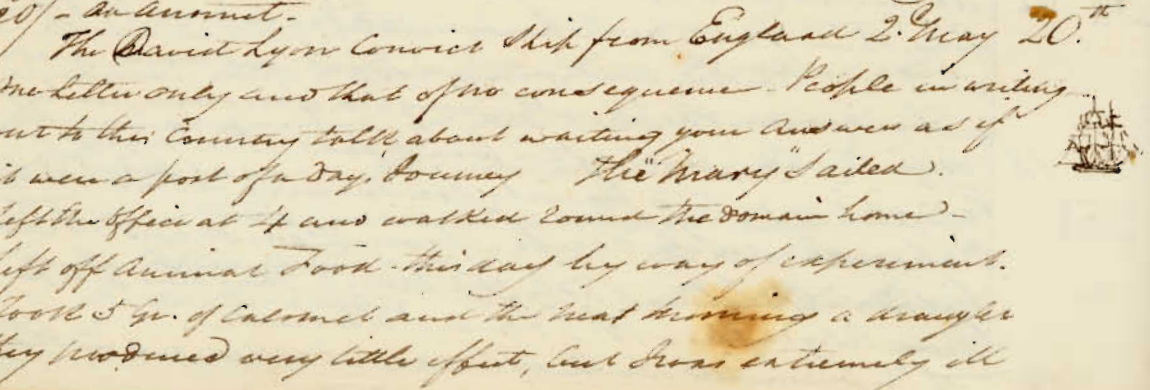 20/- an
The David Lyon Convict Ship from England 2d. May 20.th
One letter only and that of no consequence. People in writing
out to this Country talk about waiting your answers as if
it were a post of a days Journey The "Mary" Sailed.
left the Office at 4 and walked round the Domain home -
left off Animal Food - this day by way of experiment.
Took 5 Gr. of Calomel and the next morning a draught
they produced very little effect, but I was extremely ill